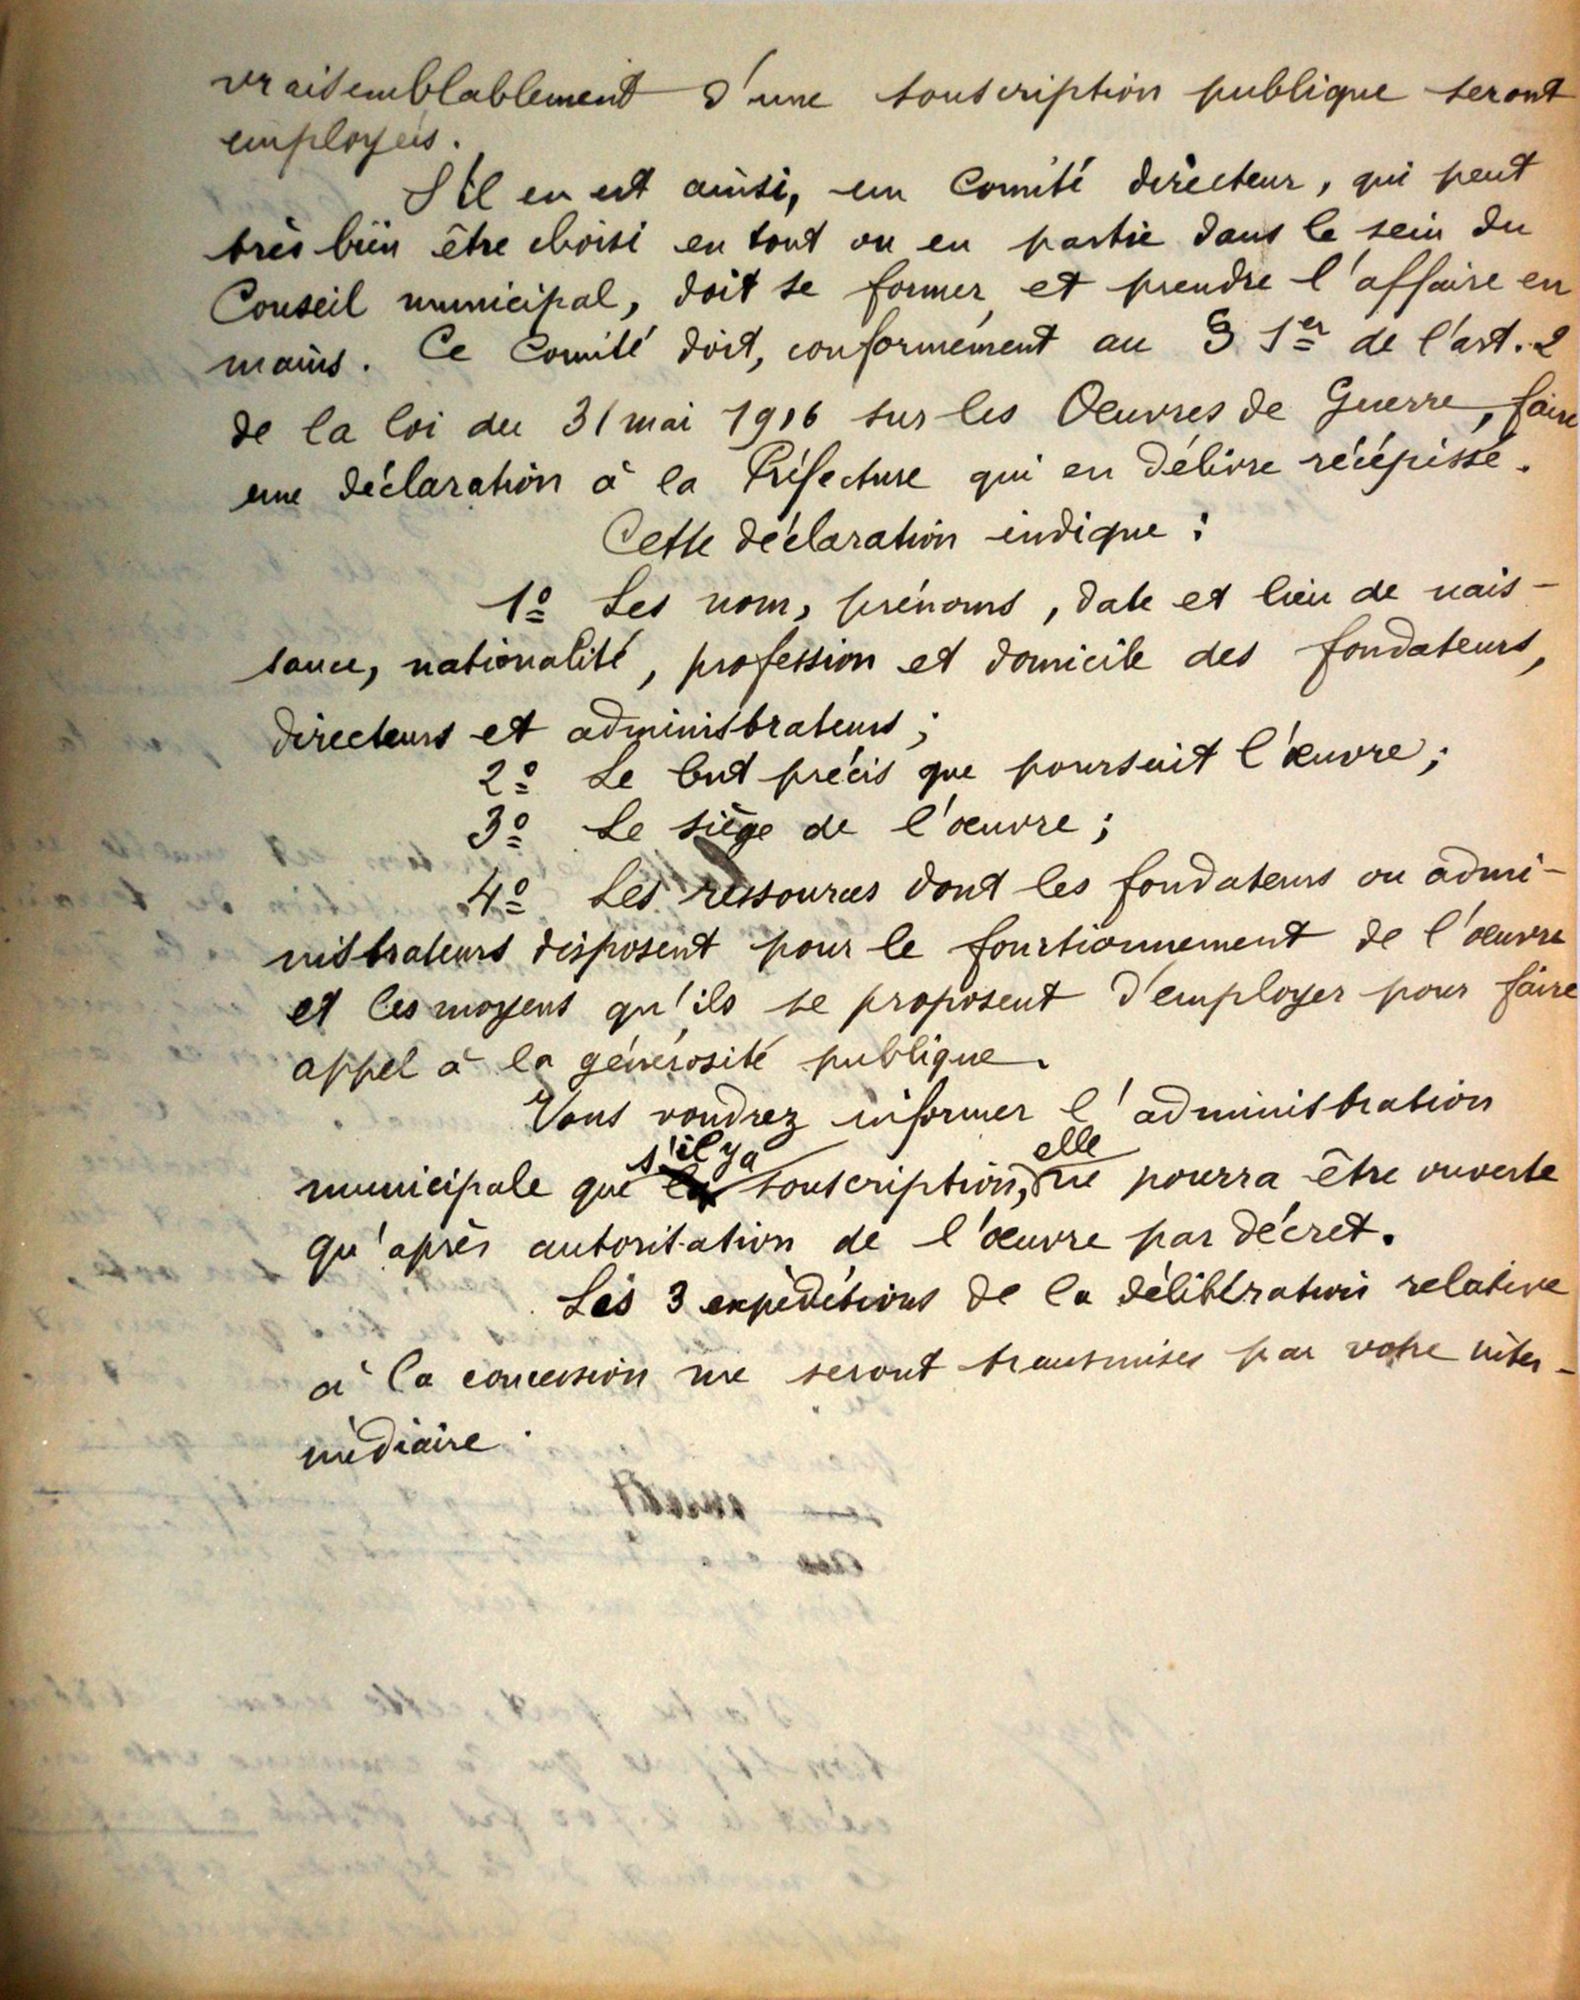 vraisemblablement d'une souscription publique seront
employés.
S'il en est ainsi, un Comité directeur, qui peut
très bien être choisi en tout ou en partie dans le sein du
Conseil municipal, doit se former et prendre l'affaire en
mains. Ce Comité doit, conformément au § 1er de l'art. 2
de la loi du 31 mai 1916 sur les Oeuvres de Guerre, faire
une déclaration à la Préfecture qui en délivre récépissé.
Cette déclaration indique :
1º Les nom, prénoms, date et lieu de nais-
sance, nationalité, profession et domicile des fondateurs,
directeurs et administrateurs ;
2º Le but précis que poursuit l'œuvre ;
3º Le siège de l'œuvre ;
4º Les ressources dont les fondateurs ou admi-
nistrateurs disposent pour le fonctionnement de l'œuvre
et les moyens qu'ils se proposent d'employer pour faire
appel à la générosité publique.
Vous voudrez informer l'administration
municipale que s'il y a souscription, elle ne pourra être ouverte
qu'après autorisation de l'œuvre par décret.
Les 3 expéditions de la délibération relative
à la concession me seront transmises par votre inter-
médiaire.